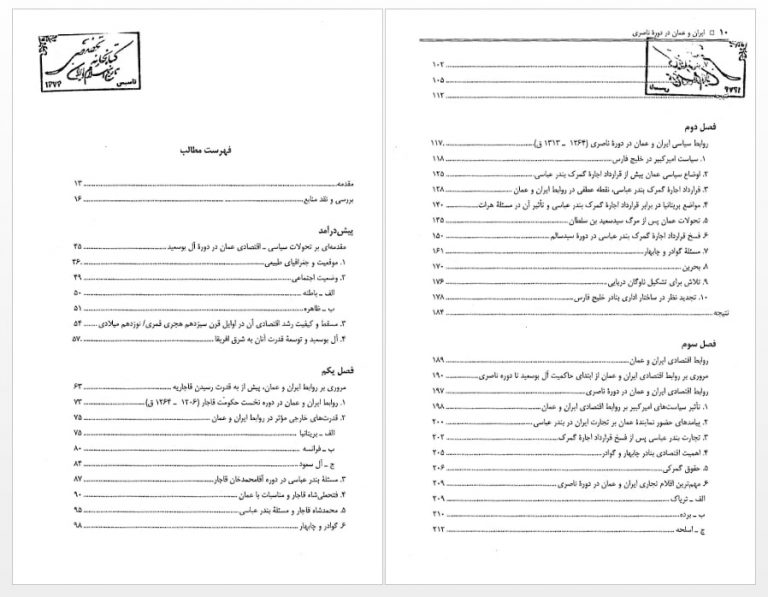 کتابخانه تخصصی
تاریخ اسلام و ایران
تاسیس ۱۳۷۶
فهرست مطالب
مقدمه ۱۳
بررسی و نقد منابع ۱۶
پیش‌درآمد
مقدمه‌ای بر تحولات سیاسی ـ اقتصادی عمان در دورهٔ آل بوسعید ۴۵
۱. موقعیت و جغرافیای طبیعی ۴۶
۲. وضعیت اجتماعی ۴۹
الف ـ باطنه ۵۰
ب ـ ظاهره ۵۱
۳. مسقط و کیفیت رشد اقتصادی آن در اوایل قرن سیزدهم هجری قمری/ نوزدهم میلادی ۵۴
۴. آل بوسعید و توسعهٔ قدرت آنان به شرق افریقا ۵۷
فصل یکم
مروری بر روابط ایران و عمان، پیش از به قدرت رسیدن قاجاریه ۶۳
۱. روابط ایران و عمان در دوره نخست حکومت قاجار (۱۲۰۶ ـ ۱۲۶۴ ق) ۷۳
۲. قدرت‌های خارجی مؤثر در روابط ایران و عمان ۷۵
الف ـ بریتانیا ۷۵
ب ـ فرانسه ۸۰
ج ـ آل سعود ۸۴
۳. مسئلهٔ بندر عباسی در دوره آقامحمدخان قاجار ۸۷
۴. فتحعلی‌شاه قاجار و مناسبات با عمان ۹۰
۵. محمدشاه قاجار و مسئلهٔ بندر عباسی ۹۵
۶. گوادر و چابهار ۹۸
۱۰ □ ایران و عمان در دورهٔ ناصری
۱۰۲
۱۰۵
نتیجه ۱۱۲
فصل دوم
روابط سیاسی ایران و عمان در دورهٔ ناصری (۱۲۶۴ ـ ۱۳۱۳ ق) ۱۱۷
۱. سیاست امیرکبیر در خلیج فارس ۱۱۸
۲. اوضاع سیاسی عمان پیش از قرارداد اجارهٔ گمرک بندر عباسی ۱۲۵
۳. قرارداد اجارهٔ گمرک بندر عباسی، نقطه عطفی در روابط ایران و عمان ۱۲۸
۴. مواضع بریتانیا در برابر قرارداد اجارهٔ گمرک بندر عباسی و تأثیر آن در مسئلهٔ هرات ۱۴۰
۵. تحولات عمان پس از مرگ سیدسعید بن سلطان ۱۴۵
۶. فسخ قرارداد اجارهٔ گمرک بندر عباسی در دورهٔ سیدسالم ۱۵۰
۷. مسئلهٔ گوادر و چابهار ۱۶۱
۸. بحرین ۱۷۰
۹. تلاش برای تشکیل ناوگان دریایی ۱۷۶
۱۰. تجدید نظر در ساختار اداری بنادر خلیج فارس ۱۷۸
نتیجه ۱۸۴
فصل سوم
روابط اقتصادی ایران و عمان ۱۸۹
مروری بر روابط اقتصادی ایران و عمان از ابتدای حاکمیت آل بوسعید تا دوره ناصری ۱۹۰
روابط اقتصادی ایران و عمان در دورهٔ ناصری ۱۹۷
۱. تأثیر سیاست‌های امیرکبیر بر روابط اقتصادی ایران و عمان ۱۹۸
۲. پیامدهای حضور نمایندهٔ عمان بر تجارت ایران در بندر عباسی ۲۰۰
۳. تجارت بندر عباسی پس از فسخ قرارداد اجارهٔ گمرک ۲۰۲
۴. اهمیت اقتصادی بنادر چابهار و گوادر ۲۰۵
۵. حقوق گمرکی ۲۰۶
۶. مهم‌ترین اقلام تجاری ایران و عمان در دورهٔ ناصری ۲۰۹
الف ـ تریاک ۲۰۹
ب ـ برده ۲۱۰
ج ـ اسلحه ۲۱۲